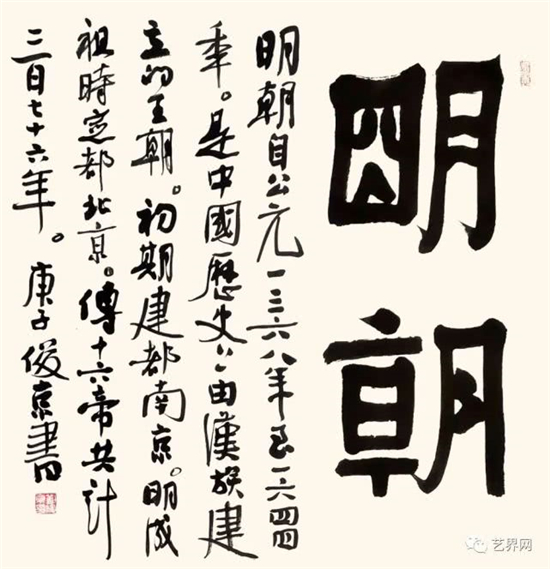 明朝
明朝自公元一三六八年至一六四四
年。是中國歷史上由漢族建
立的王朝。初期建都南京。明成
祖時定都北京。傳十六帝共計
二百七十六年。庚子俊京書
艺界网